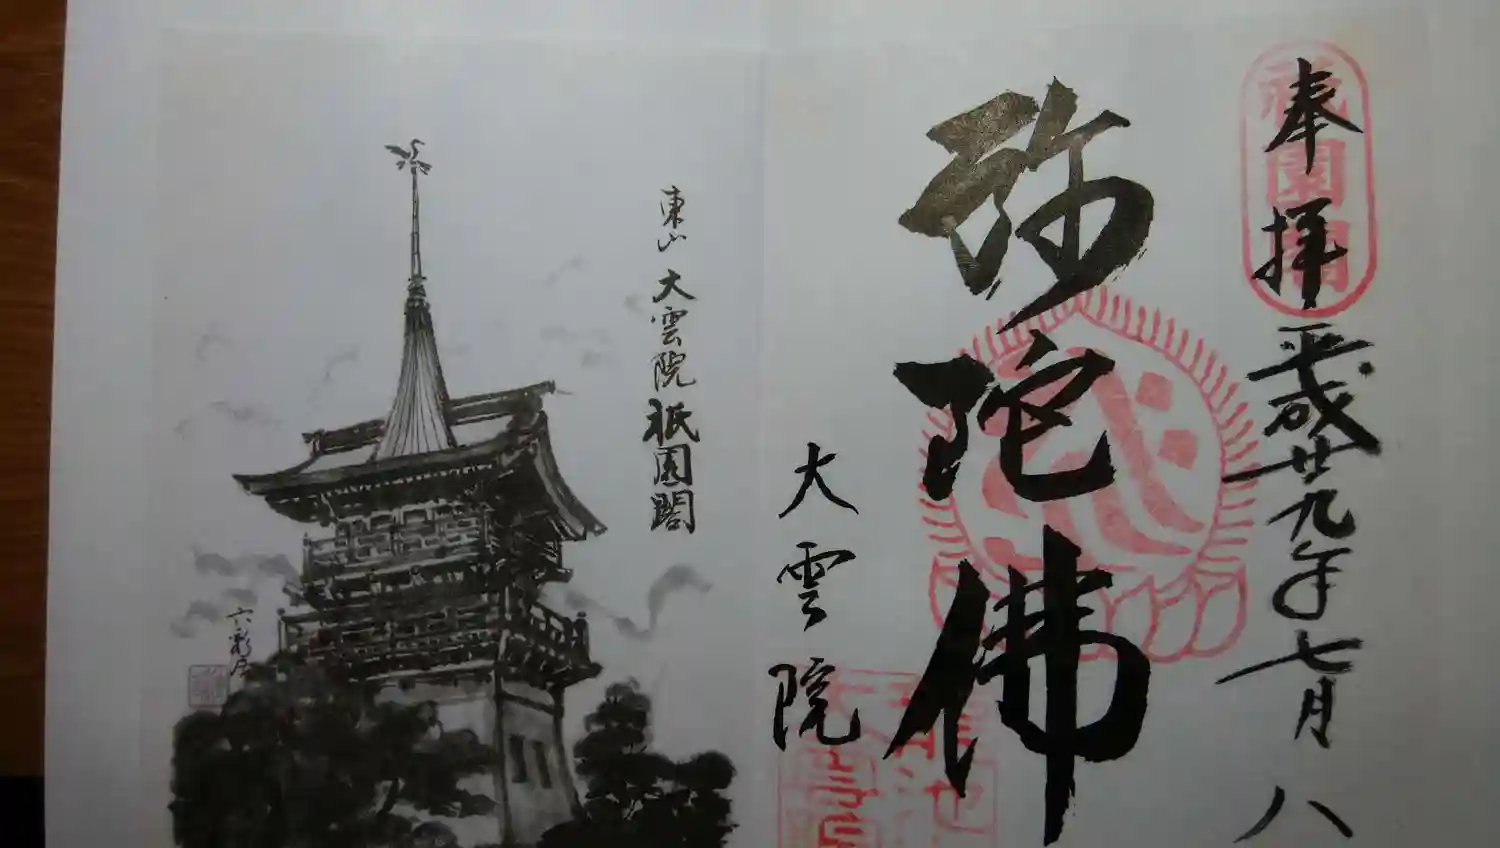 奉拝
平成廿九年七月八
祇園閣
弥陀佛
大雲院
東山 大雲院 祇園閣